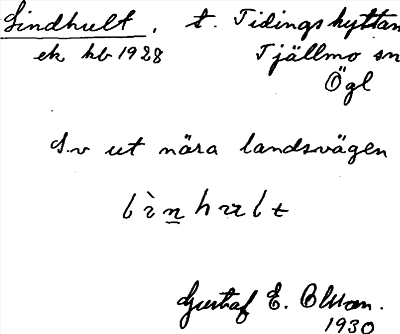 Lindhult, t. Tidingshyttan
ek hb 1928 Tjällmo sn
Ögl
S.v ut nära landsvägen
Gustaf E. Olsson.
1930